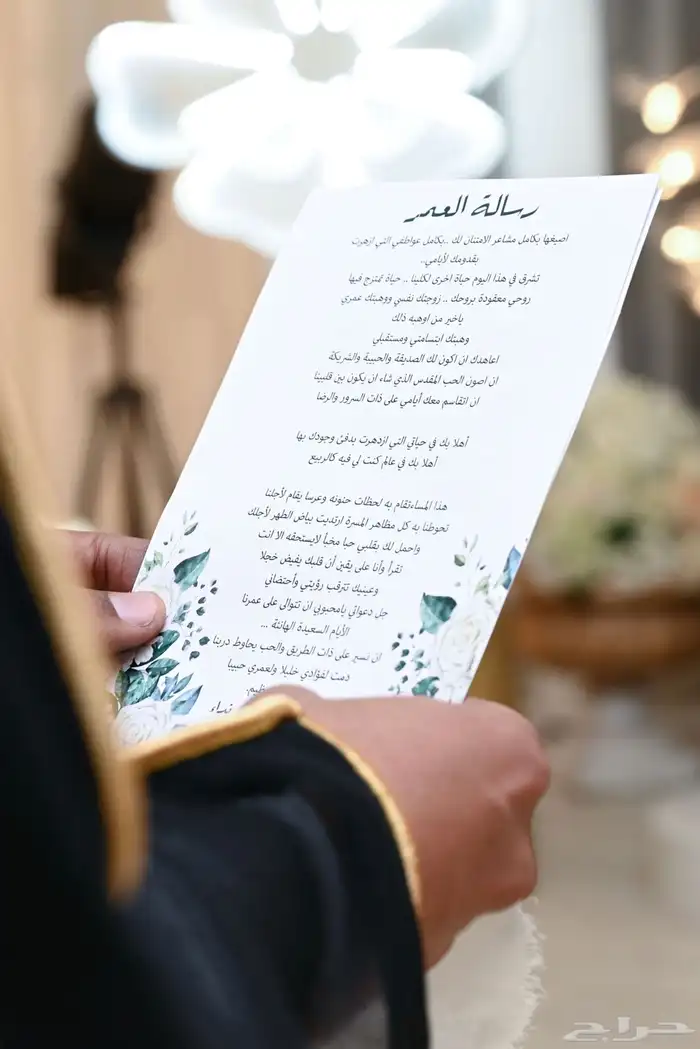 رسالة العمر
اصيغها بكامل مشاعر الامتنان لك ..بكامل عواطفي التي ازهرت
بقدومك لأيامي..
تشرق في هذا اليوم حياة اخرى لكلينا .. حياة تمتزج فيها
روحي معقودة بروحك .. زوجتك نفسي ووهبتك عمري
ياخير من اوهبه ذلك
وهبتك ابتسامتي ومستقبلي
اعاهدك ان اكون لك الصديقة والحبيبة والشريكة
ان اصون الحب المقدس الذي شاء ان يكون بين قلبينا
ان اتقاسم معك أيامي على ذات السرور والرضا
أهلا بك في حياتي التي ازدهرت بدفئ وجودك بها
أهلا بك في عالم كنت لي فيه كالربيع
هذا المساءتقام به لحظات حنونه وعرسا يقام لأجلنا
تحوطنا به كل مظاهر المسرة ارتديت بياض الطهر لأجلك
واحمل لك بقلبي حبا مخبأ لايستحقه الا انت
تقرأ وأنا على يقين أن قلبك يفيض خجلا
وعينيك تترقب رؤيتي وأحتضاني
جل دعواتي يامحبوبي ان تتوالى على عمرنا
الأيام السعيدة الهانئة ...
ان نسير على ذات الطريق والحب يحاوط دربنا
دمت لفؤادي خليلا ولعمري حبيبا
نداء
حراج